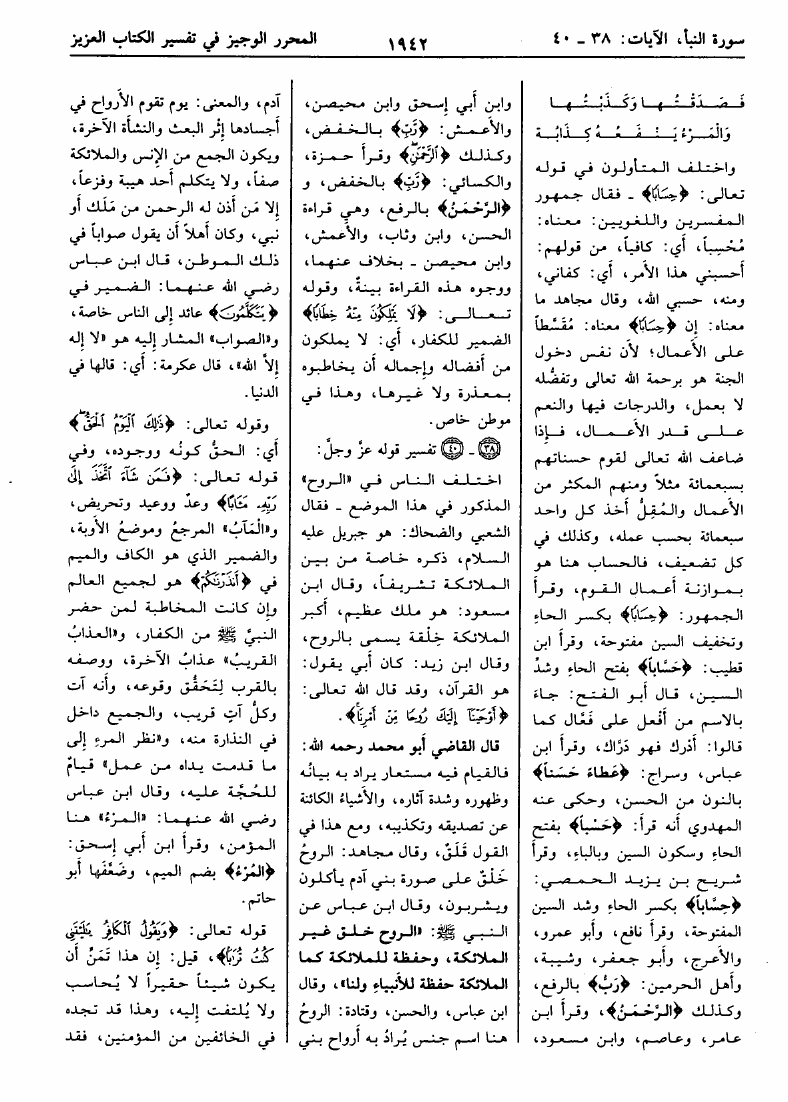 سورة النبأ، الآيات: ٣٨ - ٤٠
١٩٤٢
المحرر الوجيز في تفسير الكتاب العزيز
فَـصَـدَقْـتُـهـا وَكَـذَبْـتُـهـا
وَالْـمَـرْءُ يَـنْـفَـعُـهُ كِـذَابُـهْ
واختلف المتأولون في قوله
تعالى: ﴿حِسَابًا﴾ - فقال جمهور
المفسرين واللغويين: معناه:
مُحْسِباً، أي: كافياً، من قولهم:
أحسبني هذا الأمر، أي: كفاني،
ومنه، حسبي الله، وقال مجاهد ما
معناه: إن ﴿حِسَابًا﴾ معناه: مُقَسَّطاً
على الأعمال؛ لأن نفس دخول
الجنة هو برحمة الله تعالى وتفضُّله
لا بعمل، والدرجات فيها والنعم
على قدر الأعمال، فإذا
ضاعف الله تعالى لقوم حسناتهم
بسبعمائة مثلاً ومنهم المكثر من
الأعمال والمُقِلُّ أخذ كل واحد
سبعمائة بحسب عمله، وكذلك في
كل تضعيف، فالحساب هنا هو
بموازنة أعمال القوم، وقرأ
الجمهور: ﴿حِسَابًا﴾ بكسر الحاء
وتخفيف السين مفتوحة، وقرأ ابن
قطيب: ﴿حَسَّاباً﴾ بفتح الحاء وشدِّ
السين، قال أبو الفتح: جاءَ
بالاسم من أفعل على فَعَّال كما
قالوا: أدْرك فهو دَرَّاك، وقرأ ابن
عباس، وسراج: ﴿عَطاءً حَسَناً﴾
بالنون من الحسن، وحكى عنه
المهدوي أنه قرأ: ﴿حَسْباً﴾ بفتح
الحاء وسكون السين وبالباء، وقرأ
شريح بن يزيد الحمصي:
﴿حِسَّاباً﴾ بكسر الحاء وشد السين
المفتوحة، وقرأ نافع، وأبو عمرو،
والأعرج، وأبو جعفر، وشيبة،
وأهل الحرمين: ﴿رَبُّ﴾ بالرفع،
وكذلك ﴿الرَّحْمَنُ﴾، وقرأ ابن
عامر، وعاصم، وابن مسعود،
وابن أبي إسحق وابن محيصن،
والأعمش: ﴿رَبِّ﴾ بالخفض،
وكذلك ﴿الرَّحْمَٰنِ﴾ وقرأ حمزة،
والكسائي: ﴿رَبِّ﴾ بالخفض، و
﴿الرَّحْمَنُ﴾ بالرفع، وهي قراءة
الحسن، وابن وثاب، والأعمش،
وابن محيصن - بخلاف عنهما،
ووجوه هذه القراءة بينةٌ، وقوله
تعالى: ﴿لَا يَمْلِكُونَ مِنْهُ خِطَابًا﴾
الضمير للكفار، أي: لا يملكون
من أفضاله وإجماله أن يخاطبوه
بمعذرة ولا غيرها، وهذا في
موطن خاص.
(٣٨) - (٤٠) تفسير قوله عزَّ وجلَّ:
اختلف الناس في «الروح»
المذكور في هذا الموضع - فقال
الشعبي والضحاك: هو جبريل عليه
السلام، ذكره خاصة من بين
الملائكة تشريفاً، وقال ابن
مسعود: هو ملك عظيم، أكبر
الملائكة خِلْقة يسمى بالروح،
وقال ابن زيد: كان أبي يقول:
هو القرآن، وقد قال الله تعالى:
﴿أَوْحَيْنَا إِلَيْكَ رُوحًا مِّنْ أَمْرِنَا﴾.
قال القاضي أبو محمد رحمه الله:
فالقيام فيه مستعار يراد به بيانُه
وظهوره وشدة آثاره، والأشياءُ الكائنة
عن تصديقه وتكذيبه، ومع هذا في
القول قَلَقٌ، وقال مجاهد: الروحُ
خَلْقٌ على صورة بني آدم يأكلون
ويشربون، وقال ابن عباس عن
النبي ﷺ: «الروح خلق غير
الملائكة، وحفظة للملائكة كما
الملائكة حفظة للأنبياء ولنا»، وقال
ابن عباس، والحسن، وقتادة: الروحُ
هنا اسم جنس يُرادُ به أرواح بني
آدم، والمعنى: يوم تقوم الأرواح في
أجسادها إثْر البعث والنشأة الآخرة،
ويكون الجمع من الإنس والملائكة
صفاً، ولا يتكلم أحد هيبة وفزعاً،
إلا مَن أَذن له الرحمن من مَلَك أو
نبي، وكان أهلاً أن يقول صواباً في
ذلك الموطن، قال ابن عباس
رضي الله عنهما: الضمير في
﴿يَتَكَلَّمُونَ﴾ عائد إلى الناس خاصة،
و«الصواب» المشار إليه هو «لا إله
إلاَّ الله»، قال عكرمة: أي: قالها في
الدنيا.
وقوله تعالى: ﴿ذَٰلِكَ الْيَوْمُ الْحَقُّ﴾
أي: الحقُّ كونُه ووجوده، وفي
قوله تعالى: ﴿فَمَن شَاءَ اتَّخَذَ إِلَىٰ
رَبِّهِ مَآبًا﴾ وعدٌ ووعيد وتحريض،
و«الْمَآبُ» المرجعُ وموضعُ الأوبة،
والضمير الذي هو الكاف والميم
في ﴿أَنذَرْنَاكُمْ﴾ هو لجميع العالم
وإن كانت المخاطبة لمن حضر
النبيَّ ﷺ من الكفار، و«العذابُ
القريبُ» عذابُ الآخرة، ووصفه
بالقرب لِتَحَقُّق وقوعه، وأنه آت
وكلُّ آتٍ قريب، والجميع داخل
في النذارة منه، و«نظر المرءِ إلى
ما قدمت يداه من عمل» قيامُ
للحُجَّة عليه، وقال ابن عباس
رضي الله عنهما: «المرْءُ» هنا
المؤمن، وقرأ ابن أبي إسحق:
﴿المُرْءُ﴾ بضم الميم، وضَعَّفَها أبو
حاتم.
قوله تعالى: ﴿وَيَقُولُ الْكَافِرُ يَا لَيْتَنِي
كُنتُ تُرَابًا﴾، قيل: إن هذا تَمَنٍّ أن
يكون شيئاً حقيراً لا يُحاسب
ولا يُلتفت إليه، وهذا قد تجده
في الخائفين من المؤمنين، فقد